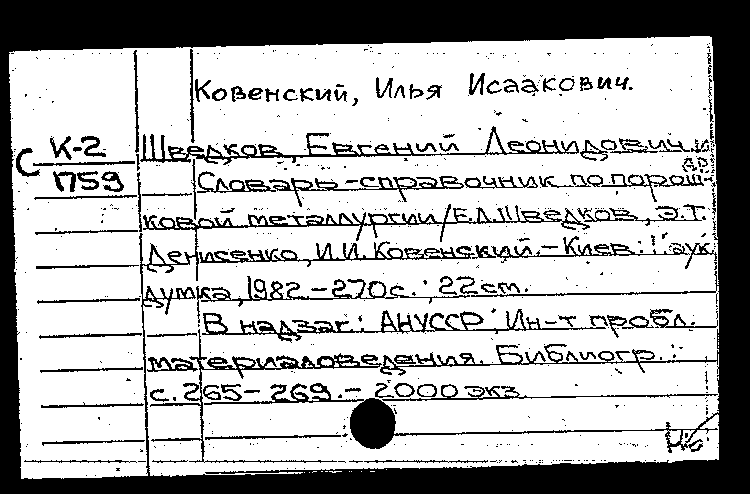 Ковенский, Илья Исаакович.
С К-2
1759
Шведков, Евгений Леонидович и др.
Словарь-справочник по порош-
ковой металлургии/Е.Л.Шведков, Э.Т.
Денисенко, И.И. Ковенский.-Киев: Наук.
думка, 1982.-270с.; 22cm.
В надзаг.: АНУССР; Ин-т пробл.
материаловедения. Библиогр.:
с. 265-269.- 2000 экз.